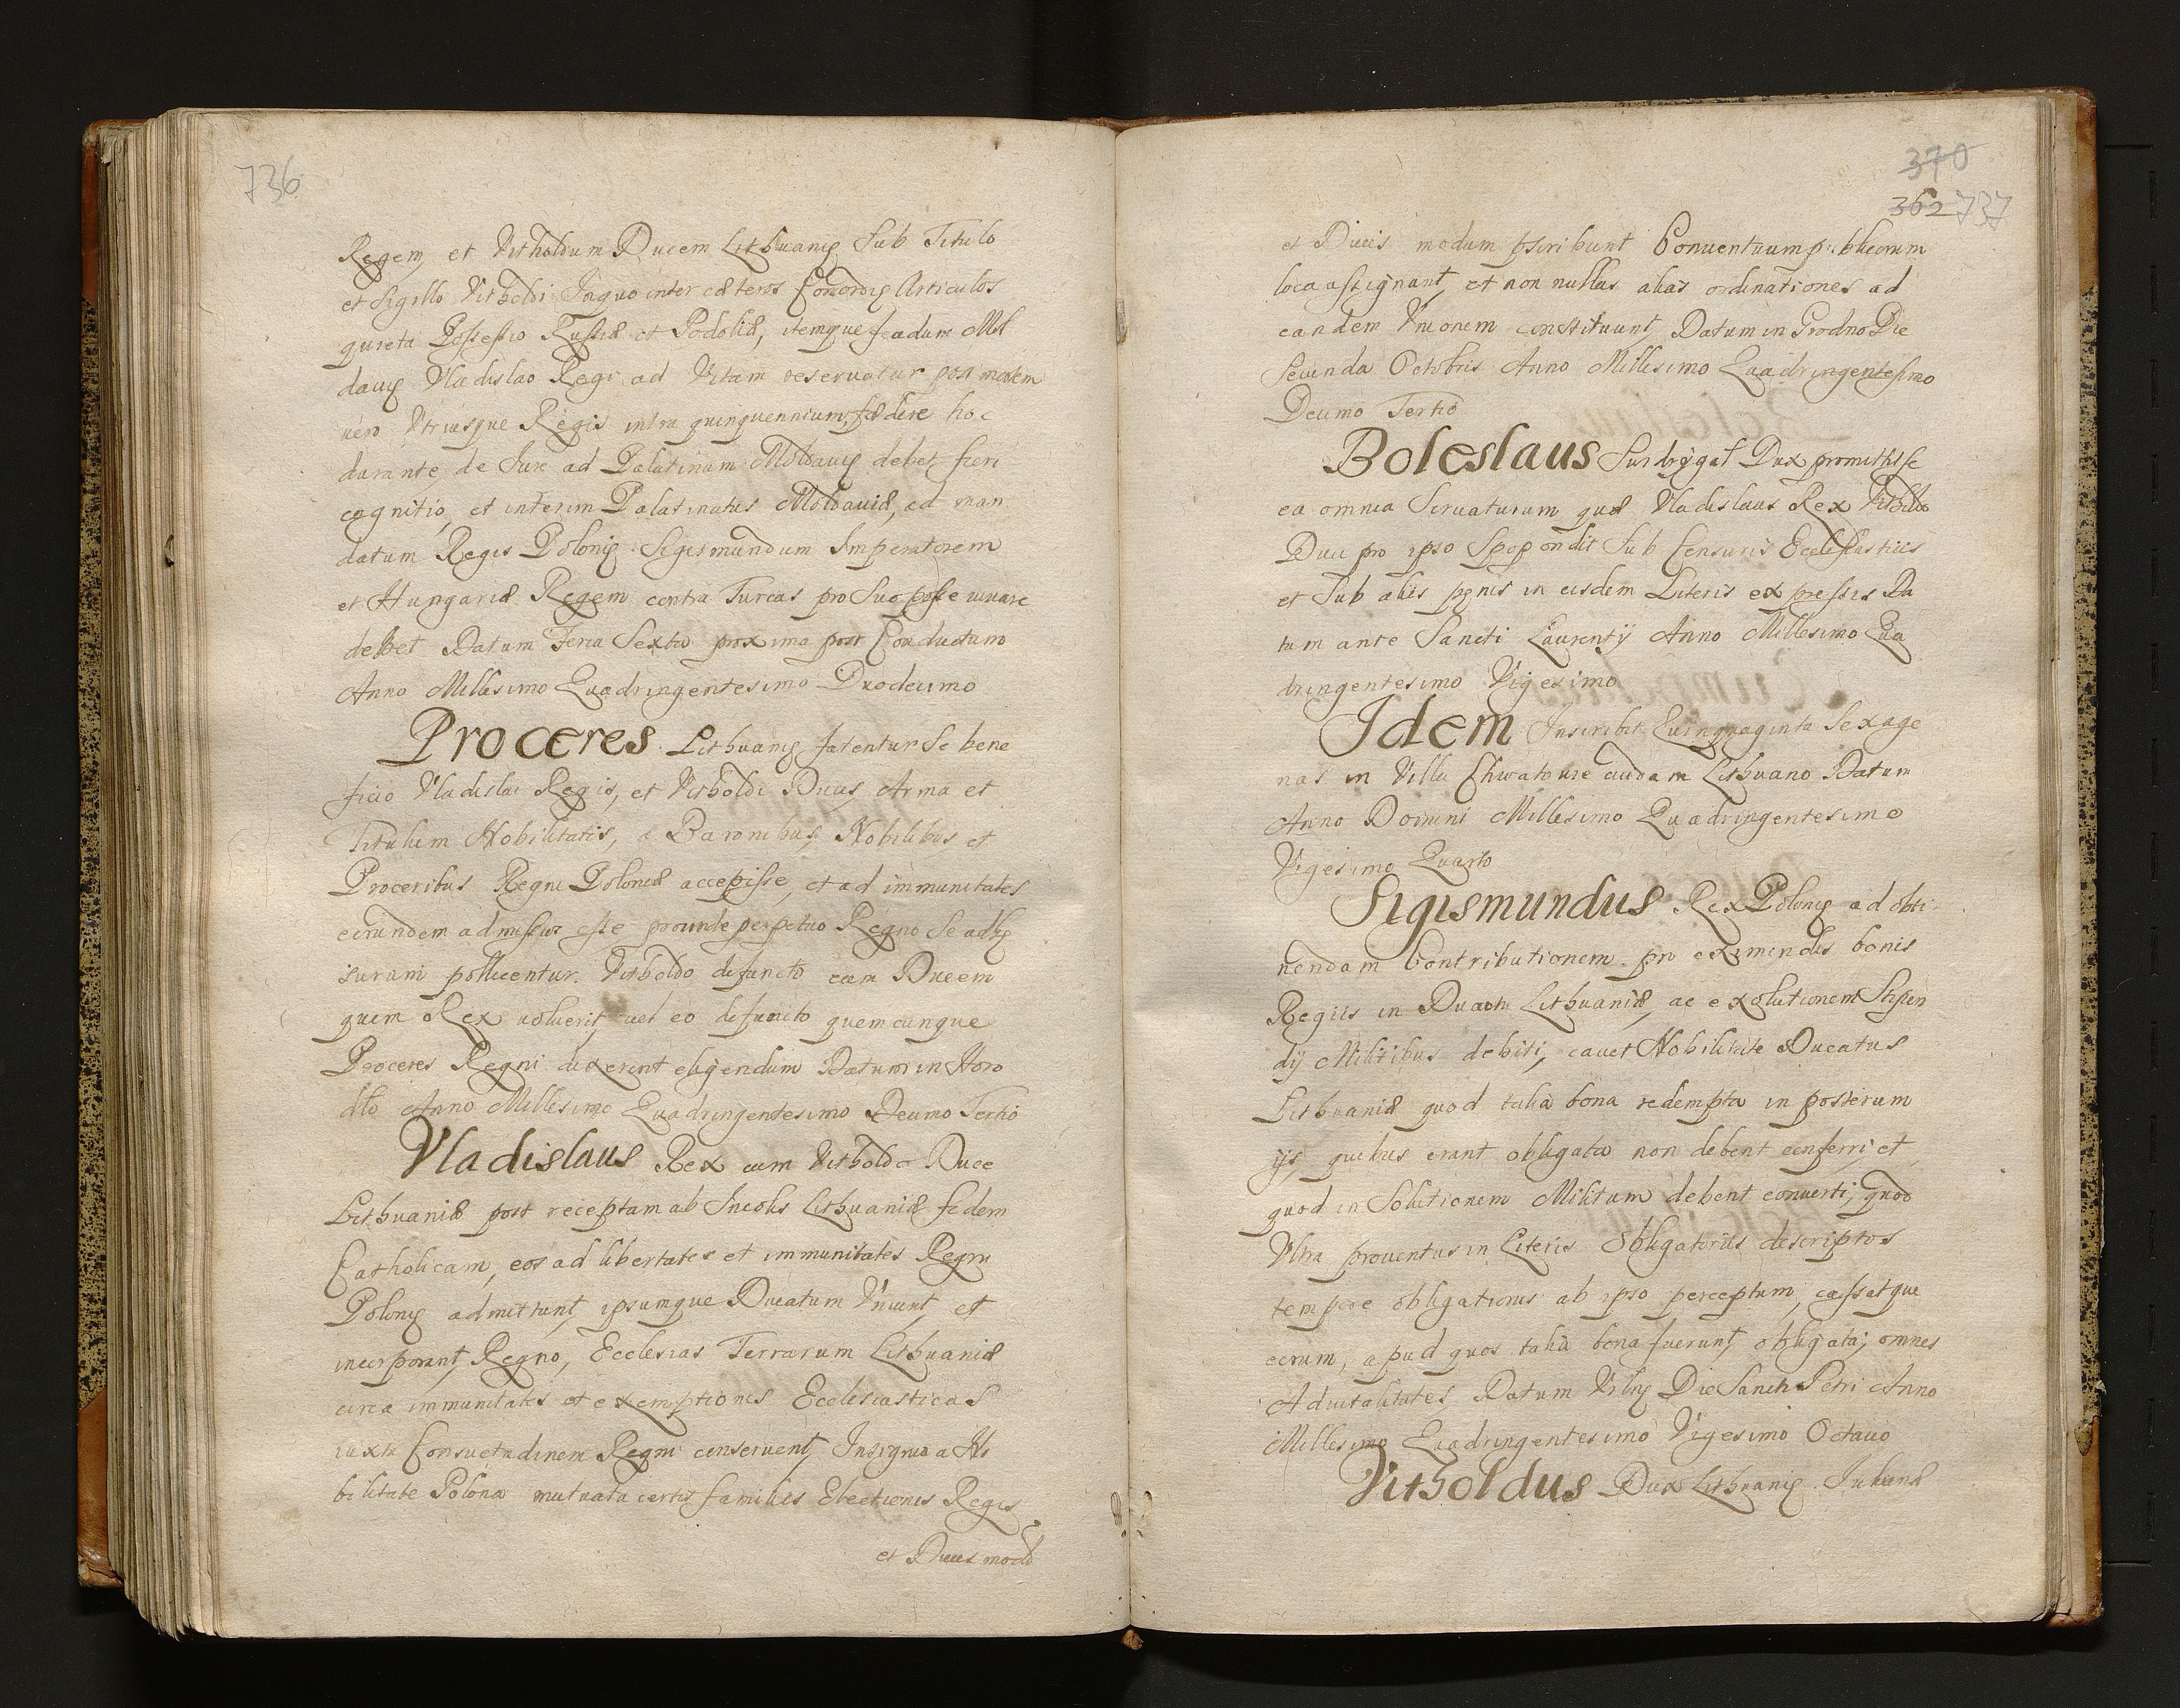 736
Regem, et Vitholdum Ducem Lithuanię Sub Titulo
et Sigillo Vitholdi Inquo inter cæteros Concordię Articulos
quieta Possessio Russiæ et Podoliæ, itemque feudum Mol
dauię Vladislao Regi ad Vitam reseruatur post mortem
uero Vtriusque Regis intra quinquennium, fædere hoc
durante de Iure ad Palatinum Moldauię debet fieri
cognitio, et interim Palatinatus Moldauiæ, ad man
datum Regis Polonię Sigismundum Imperatorem
et Hungariæ Regem contra Turcas pro Suo posse iuuare
debet Datum Feria Sexta proxima post Conductum
Anno Millesimo Quadringentesimo Duodecimo
Proceres Lithuanię fatentur Se bene
ficio Vladislai Regis, et Vitholdi Ducis, Arma et
Titulum Nobilitatis, a Baronibus, Nobilibus et
Proceribus Regni Poloniæ accepisse, et ad immunitates
eorundem admissos esse proinde perpetuo Regno Se adhę
suram pollicentur. Vitholdo defuncto eum Ducem
quem Rex uoluerit, uel eo defuncto quemcunque
Proceres Regni dixerint eligendum Datum in Horo
dło Anno Millesimo Quadringentesimo Decimo Tertio
Vladislaus Rex cum Vitholdo Duce
Lithuaniæ post receptam ab Incolis Lithuaniæ fidem
Catholicam, eos ad libertates et immunitates Regni
Polonię admittunt, ipsumque Ducatum Vniunt, et
incorporant, Regno, Ecclesias Terrarum Lithuaniæ
circa immunitates et exemptiones Ecclesiasticas
iuxta Consuetudinem Regni conseruent, Insignia a No
bilitate Polona mutuata certis familiis Electionis Regis
et Ducis modũ
370
362 737
et Ducis modum pscribunt Conuentuum publicorum
loca assignant, et non nullas alias ordinationes ad
eandem Vnionem constituunt, Datum in Grodno Die
Secunda Octobris Anno Millesimo Quadringentesimo
Decimo Tertio
Boleslaus Surdrygał Dux promittit se
ea omnia Seruaturum quæ Vladislaus Rex Vitholdo
Duci pro ipso Spopondit Sub Censuris Ecclesiasticis
et Sub aliis pęnis in eisdem Literis expressis Da
tum ante Sancti Laurentij Anno Millesimo Qua
dringentesimo Vigesimo
Idem Inscribit Quinquaginta Sexage
nas in Villa Chwatowre cuidam Lithuano Datum
Anno Domini Millesimo Quadringentesimo
Vigesimo Quarto
Sigismundus Rex Polonię ad obti
nendam Contributionem pro eximendis bonis
Regiis in Ducatu Lithuaniæ, ac exolutionem Stipen
dij Militibus debiti, cauet Nobilitate Ducatus
Lithuaniæ quod talia bona redempta in posterum
ijs, quibus erant obligata non debent conferri, et
quod in Solutionem Militum debent conuerti, quod
Vltra prouentus in Literis Obligatoriis descriptos
tempore obligationis ab ipso perceptum, cassatque
eorum, apud quos talia bona fuerunt, obligata, omnes
Aduitalitates Datum Vilnę Die Sancti Petri Anno
Millesimo Quadringentesimo Vigesimo Octauo
Vitholdus Dux Lithuanię Iulianæ